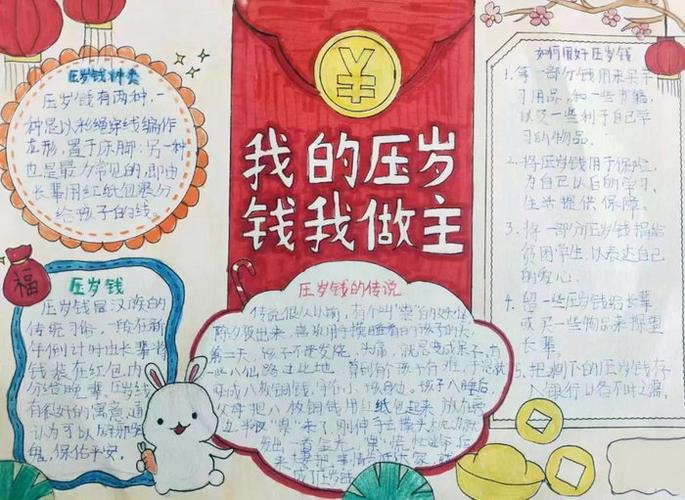 压岁钱种类
压岁钱有两种,一
种是以彩绳穿线编作
龙形,置于床脚,另一种
也是最为常见的,即由
长辈用红纸包裹分
给孩子的钱.
福
压岁钱
压岁钱是汉族的
传统习俗,一般在新
年倒计时由长辈将
钱装在红包内
分给晚辈.压岁钱
有很好的寓意,通
认为可以
保佑平安.
¥
我的压岁
钱我做主
压岁钱的传说
传说很久以前,有个叫"祟"的妖怪
除夕夜出来,专用手摸睡着的孩子的头
第二天,孩子不是发烧、头痛,就是变成呆子,有
一些八仙路过此地
变成八枚铜钱,守在小孩身边.孩子入睡后
父母把八枚铜钱用红纸包起来放在
边,半夜"祟"来了,刚伸手去摸
如何用好压岁钱
1.第一部分钱用来买学
习用品,和一些书籍,
以及一些利于自己学
习的物品.
2.将压岁钱用于保险,
为自己以后的学习,
生活提供保障.
3.将一部分压岁钱捐给
贫困学生,以表达自己
的爱心.
4.留一些压岁钱给长辈
或买一些物品来探望
长辈.
5.把剩下的压岁钱存
入银行以备不时之需.